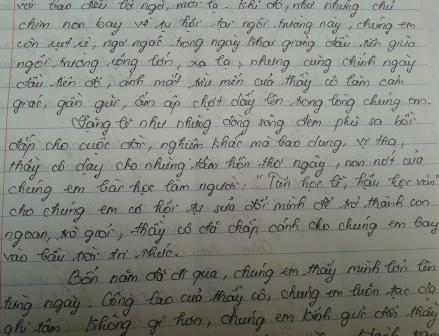 với bao điều lạ ngờ, mới lạ. Khi đó, như những chú
chim non bay về tụ hội tại ngôi trường này, chúng em
còn rụt rè, ngơ ngác trong ngày khai giảng đầu tiên giữa
ngôi trường rộng lớn, xa lạ, nhưng cũng chính ngày
đầu tiên đó, ánh mắt trìu mến của thầy cô làm cảm
giác, gần gũi, ấm áp chợt dấy lên trong lòng chúng em.
Lặng lẽ như những dòng sông đem phù sa bồi
đắp cho cuộc đời, nghiêm khắc mà bao dung, vị tha,
thầy cô dạy cho những tâm hồn thơ ngây, non nớt của
chúng em bài học làm người: "Tiên học lễ, hậu học văn"
cho chúng em cơ hội tự sửa đổi mình để trở thành con
ngoan, trò giỏi, thầy cô đã chắp cánh cho chúng em bay
vào bầu trời tri thức.
Bốn năm đã đi qua, chúng em thấy mình lớn lên
từng ngày. Công lao của thầy cô, chúng em luôn tạc dạ
ghi tâm. Không gì hơn, chúng em kính gửi tới thầy